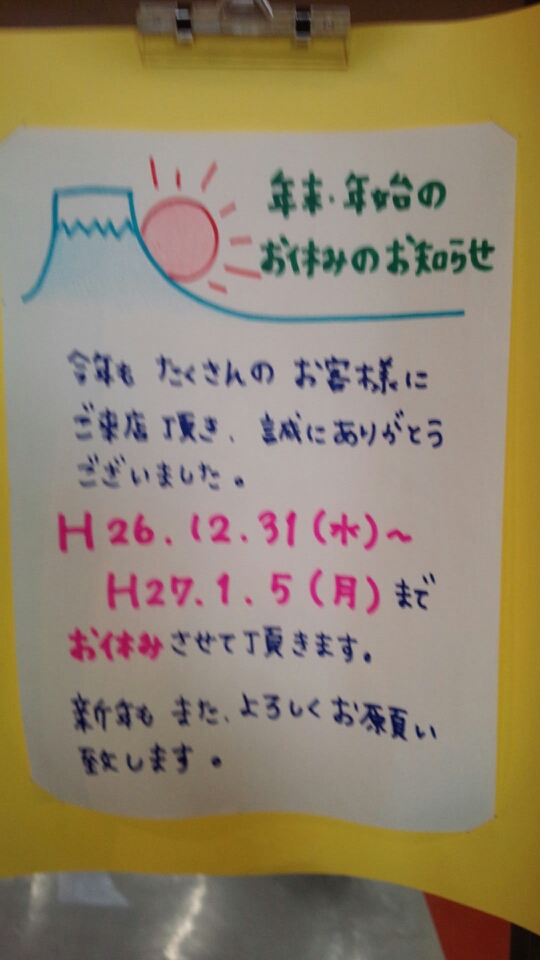 年末・年始の
お休みのお知らせ
今年も たくさんの お客様に
ご来店頂き、誠にありがとう
ございました。
H26.12.31(水)～
H27.1.5(月)まで
お休みさせて頂きます。
新年も また、よろしくお願い
致します。